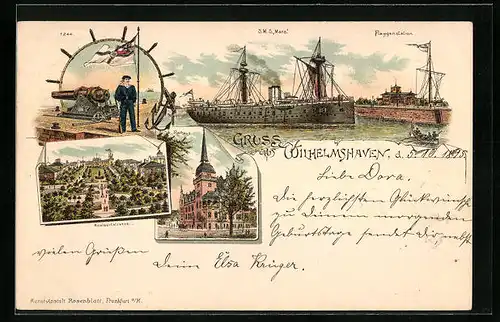 1244
S.M.S. „Mars."
Flaggenstation
Gruss
aus
Wilhelmshaven, d. 5.10. 1895
Liebe Dora.
Die herzlichsten Glückwünsche
zu Deinem morgenden
Geburtstage sendet dir nebst
vielen Grüßen
Deine Elsa Krüger.
Kunstanstalt Rosenblatt, Frankfurt a/M.